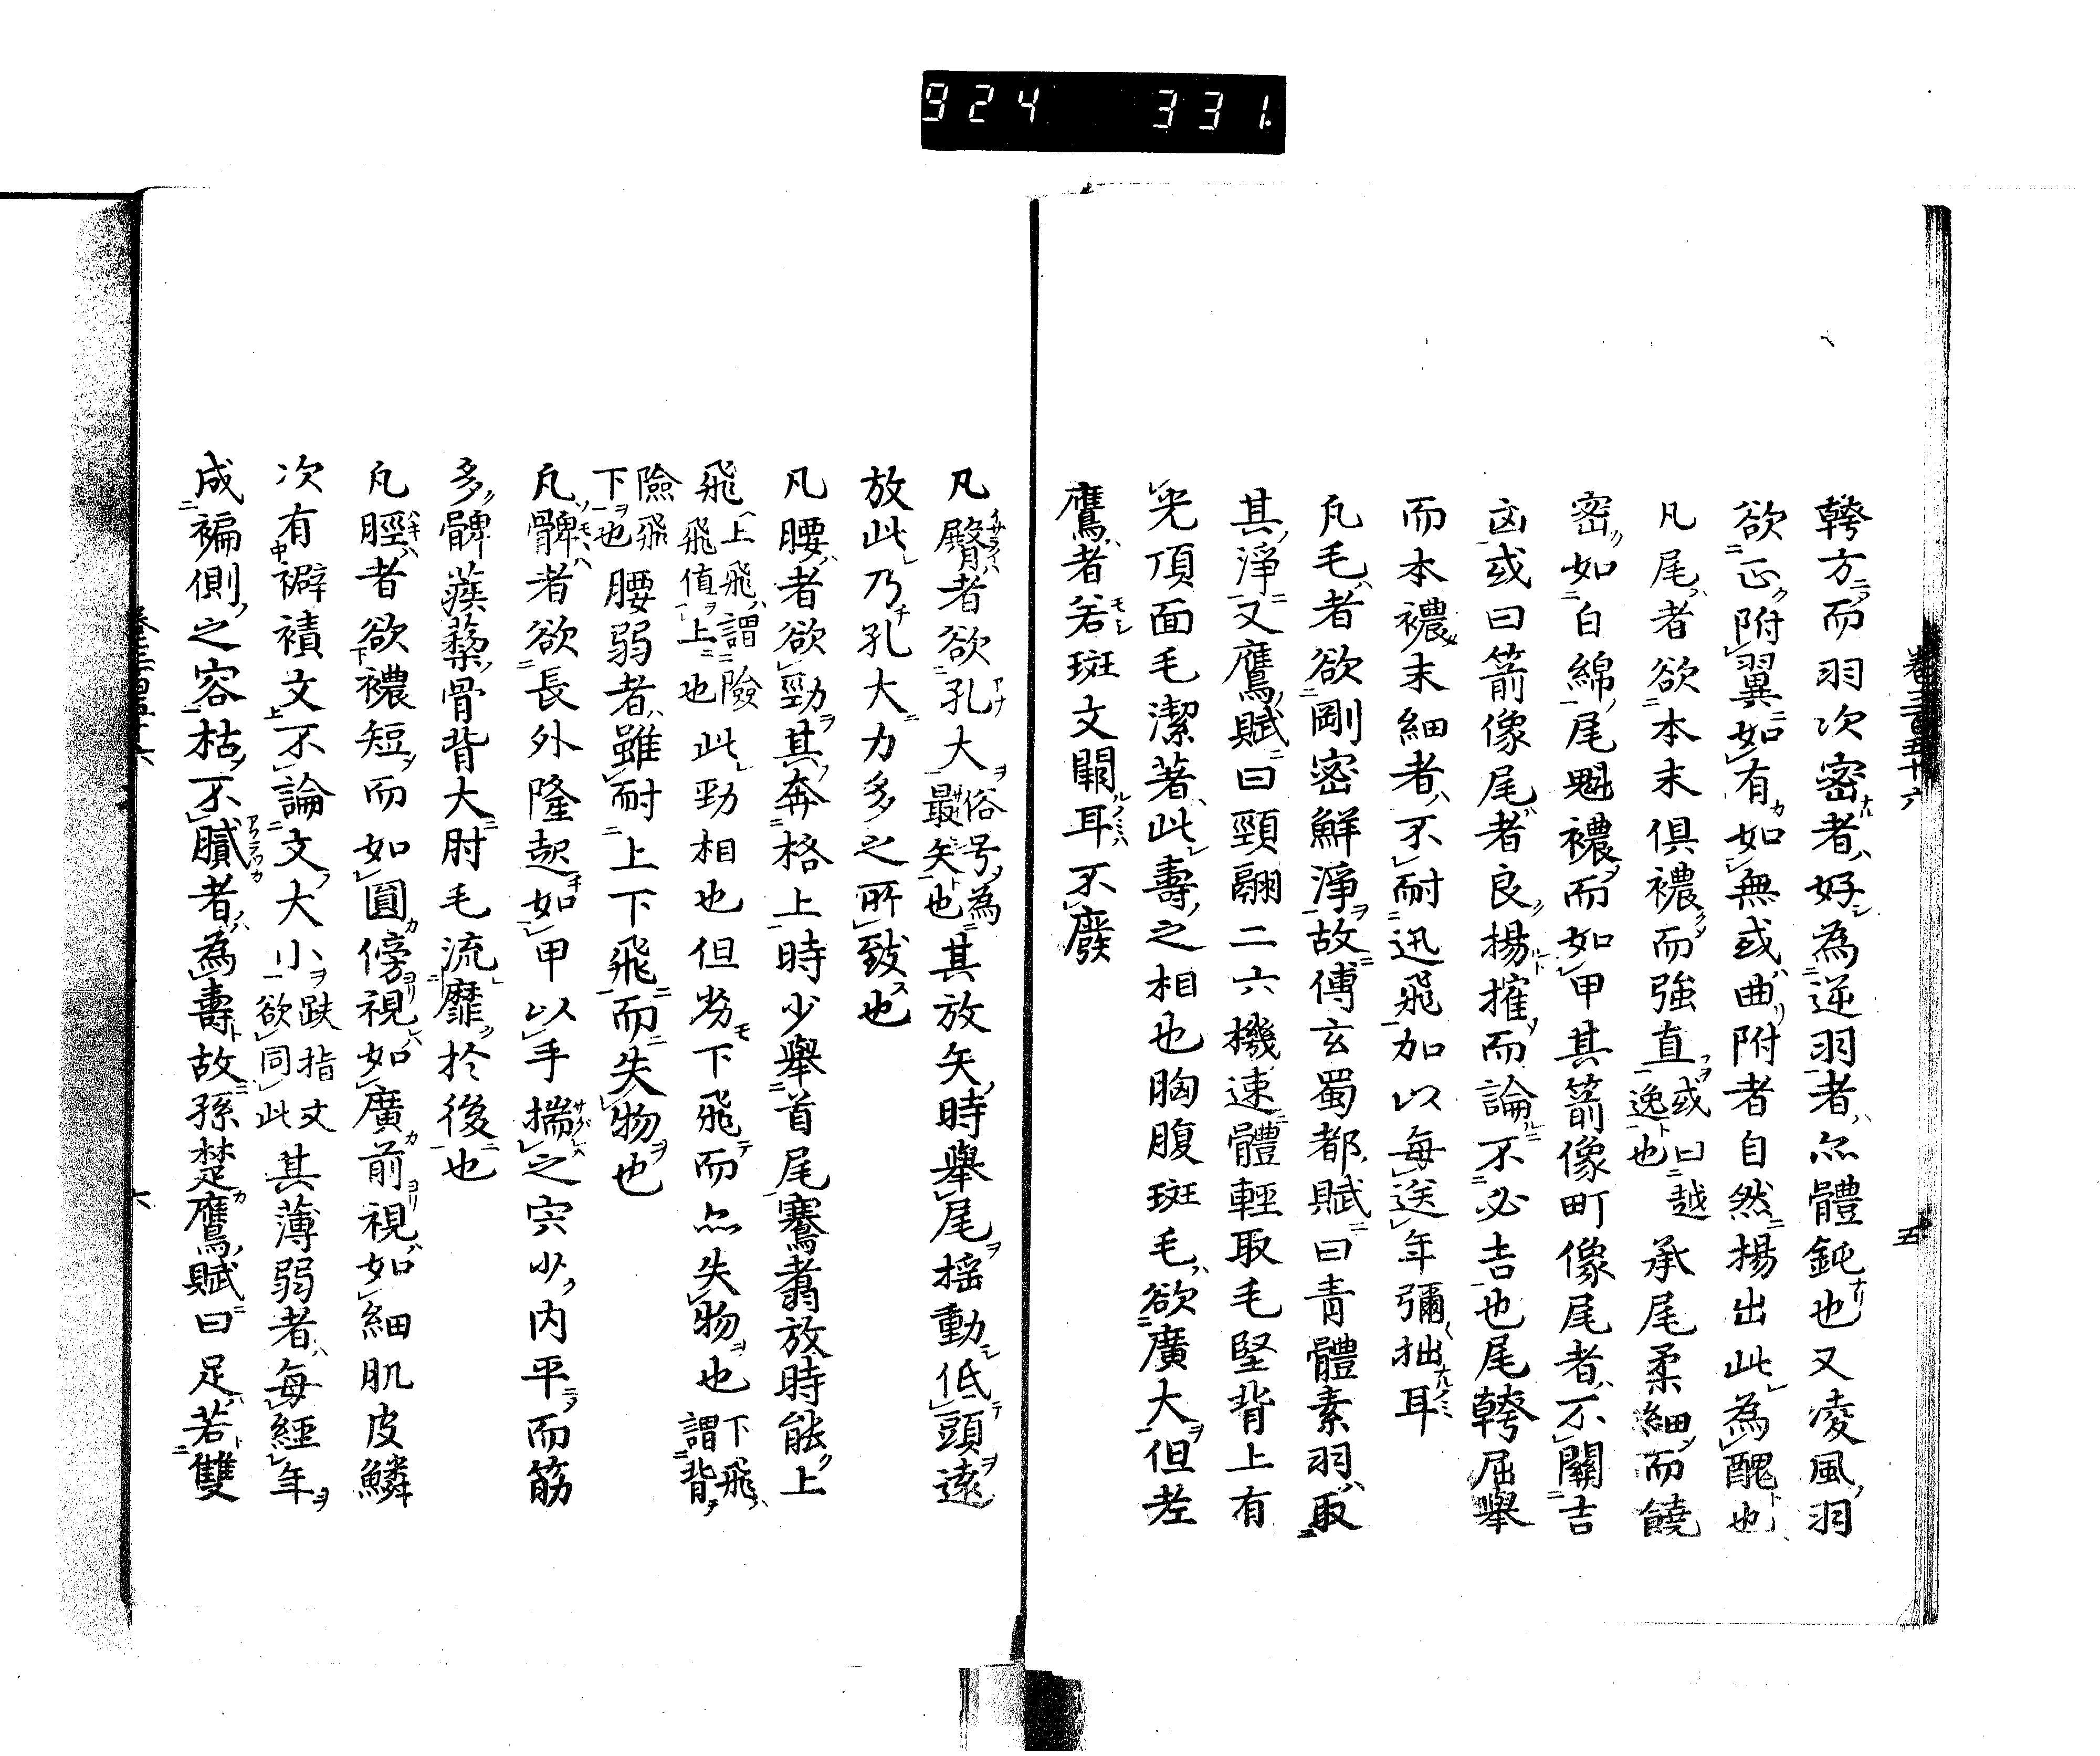 924 331
卷三百五十六
五
鞛方而羽次密者好為逆羽者亦體鈍也又凌風羽
欲正附翼如有如無或曲附者自然揚出此為醜也
凡尾者欲本末俱襛而強直或曰越逸也承尾柔細而饒
密如白綿尾魁襛而如甲其箭像町像尾者不關吉
凶或曰箭像尾者良揚搉而論不必吉也尾鞛屈舉
而本襛末細者不耐迅飛加以每送年彌拙耳
凡毛者欲剛密鮮淨故傅玄蜀都賦曰青體素羽取
其淨又鷹賦曰頸翮二六機速體輕取毛堅背上有
光頂面毛潔著此壽之相也胸腹斑毛欲廣大但差
鷹者若斑文關耳不廢
凡臀者欲孔大俗号為最矢也其放矢時舉尾搖動低頭遠
放此乃孔大力多之所致也
凡腰者欲勁其奔格上時少舉首尾騫翥放時能上
飛上飛謂險飛值上也此勁相也但劣下飛而亦失物也下飛謂背
險飛下也腰弱者雖耐上下飛而失物也
凡髀者欲長外隆起如甲以手揣之宍少内平而筋
多髀蒺藜骨背大肘毛流靡於後也
凡脛者欲襛短而如圓傍視如廣前視如細肌皮鱗
次有襞積文不論文大小趺指文欲同此其薄弱者每經年
成褊側之容枯不膩者為壽故孫楚鷹賦曰足若雙
六